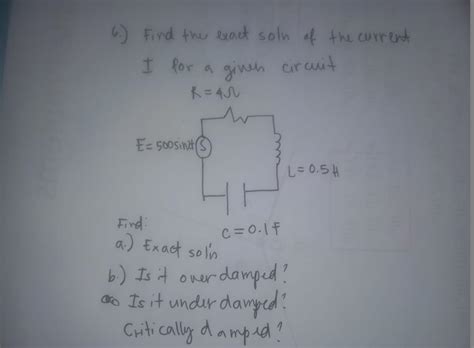 6.) Find the exact soln of the current
I for a given circuit
R = 4Ω
E = 500sin4t
S
L = 0.5 H
C = 0.1 F
Find:
a.) Exact sol'n
b.) Is it overdamped?
Is it underdamped?
Critically damped?